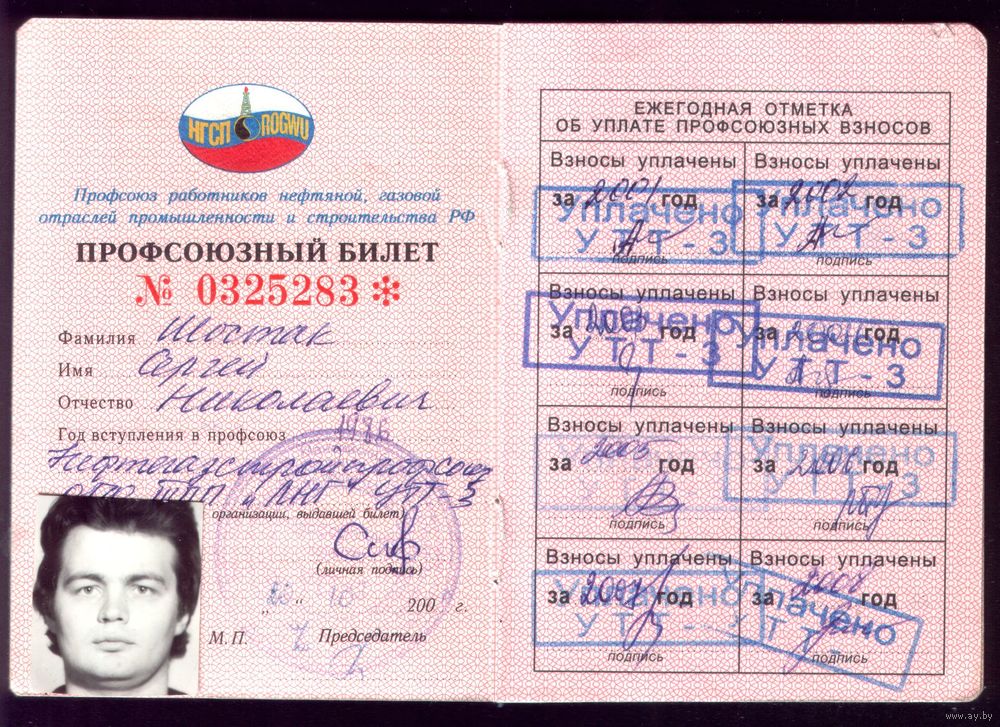 НГСП ROGWU
Профсоюз работников нефтяной, газовой
отраслей промышленности и строительства РФ
ПРОФСОЮЗНЫЙ БИЛЕТ
№ 0325283 *
Фамилия Шостак
Имя Сергей
Отчество Николаевич
Год вступления в профсоюз 1976
Нефтегазстройпрофсоюз
УТТ-3
организации, выдавшей билет)
(личная подпись)
200 г.
М. П. Председатель
ЕЖЕГОДНАЯ ОТМЕТКА
ОБ УПЛАТЕ ПРОФСОЮЗНЫХ ВЗНОСОВ
Взносы уплачены
за 2001 год
Уплачено
УТТ-3
подпись
Взносы уплачены
за 2002 год
Уплачено
УТТ-3
подпись
Взносы уплачены
за 2003 год
Уплачено
УТТ-3
подпись
Взносы уплачены
за 2004 год
Уплачено
УТТ-3
подпись
Взносы уплачены
за 2005 год
подпись
Взносы уплачены
за 2006 год
Уплачено
УТТ-3
подпись
Взносы уплачены
за 2007 год
Уплачено
УТТ
подпись
Взносы уплачены
за год
Уплачено
подпись
www.ay.by